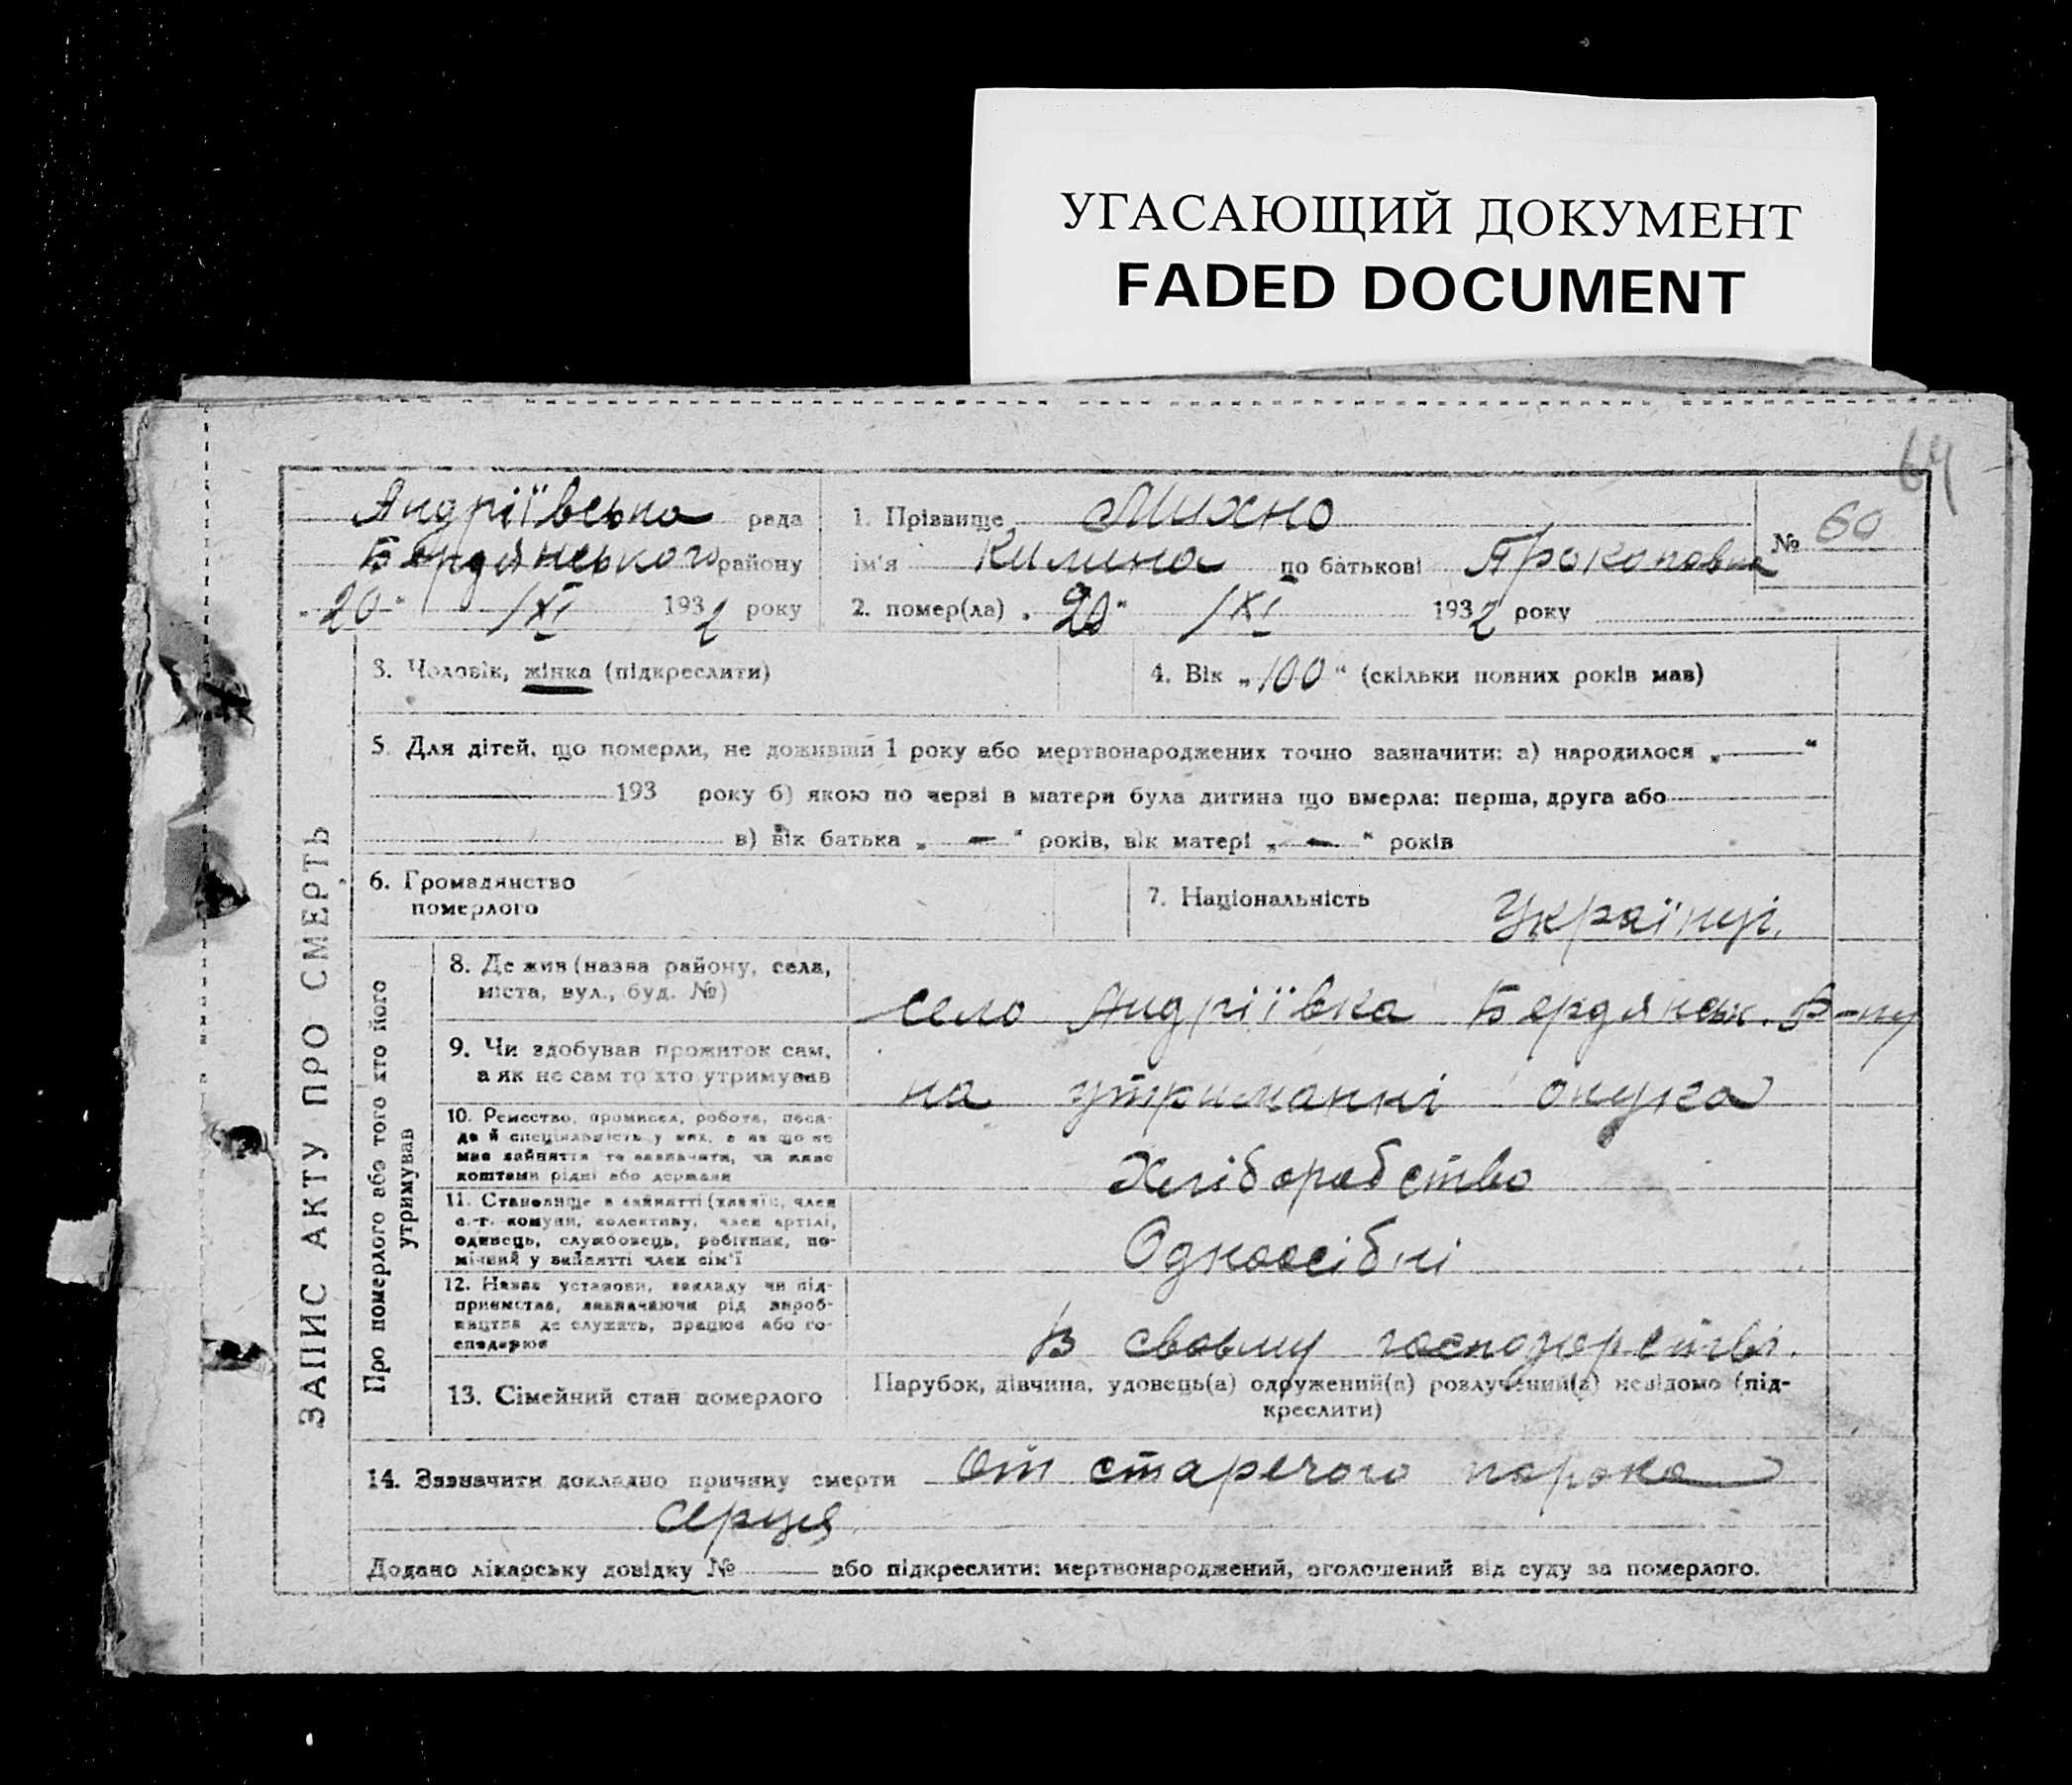 УГАСАЮЩИЙ ДОКУМЕНТ
FADED DOCUMENT
64
Андріївська рада
Бердянського району
„20“ /XI 1932 року
1. Прізвище Михно
ім'я Килина по батькові Прокоповна
№ 60
2. помер(ла) „20“ /XI 1932 року
ЗАПИС АКТУ ПРО СМЕРТЬ
3. Чоловік, жінка (підкреслити)
4. Вік „100“ (скільки повних років мав)
5. Для дітей, що померли, не доживши 1 року або мертвонароджених точно зазначити: а) народилося „——“
193 року б) якою по черзі в матери була дитина що вмерла: перша, друга або
в) вік батька „—“ років, вік матері „—“ років
6. Громадянство
померлого
7. Національність Українці.
Про померлого або того хто його
утримував
8. Де жив (назва району, села,
міста, вул., буд. №)
село Андріївка Бердянськ. Р-ну
9. Чи здобував прожиток сам,
а як не сам то хто утримував
на утриманні онука
10. Ремество, промисел, робота, поса-
да й спеціяльність у них, а як що не
мав зайняття то зазначити, чи живе
коштами рідні або держави
Хліборобство
11. Становище в зайнятті (хазяїн, член
с.-г. комуни, колективу, член артілі,
одинець, службовець, робітник, по-
мічний у зайнятті член сім'ї
Одноосібні
12. Назва установи, закладу чи під-
приємства, зазначаючи рід вироб-
ництва де служить, працює або го-
сподарює
В своєму господарстві.
13. Сімейний стан померлого
Парубок, дівчина, удовець(а) одружений(а) розлучений(а) невідомо (під-
креслити)
14. Зазначити докладно причину смерти От старечого порока
серця
Додано лікарську довідку № —— або підкреслити: мертвонароджений, оголошений від суду за померлого.